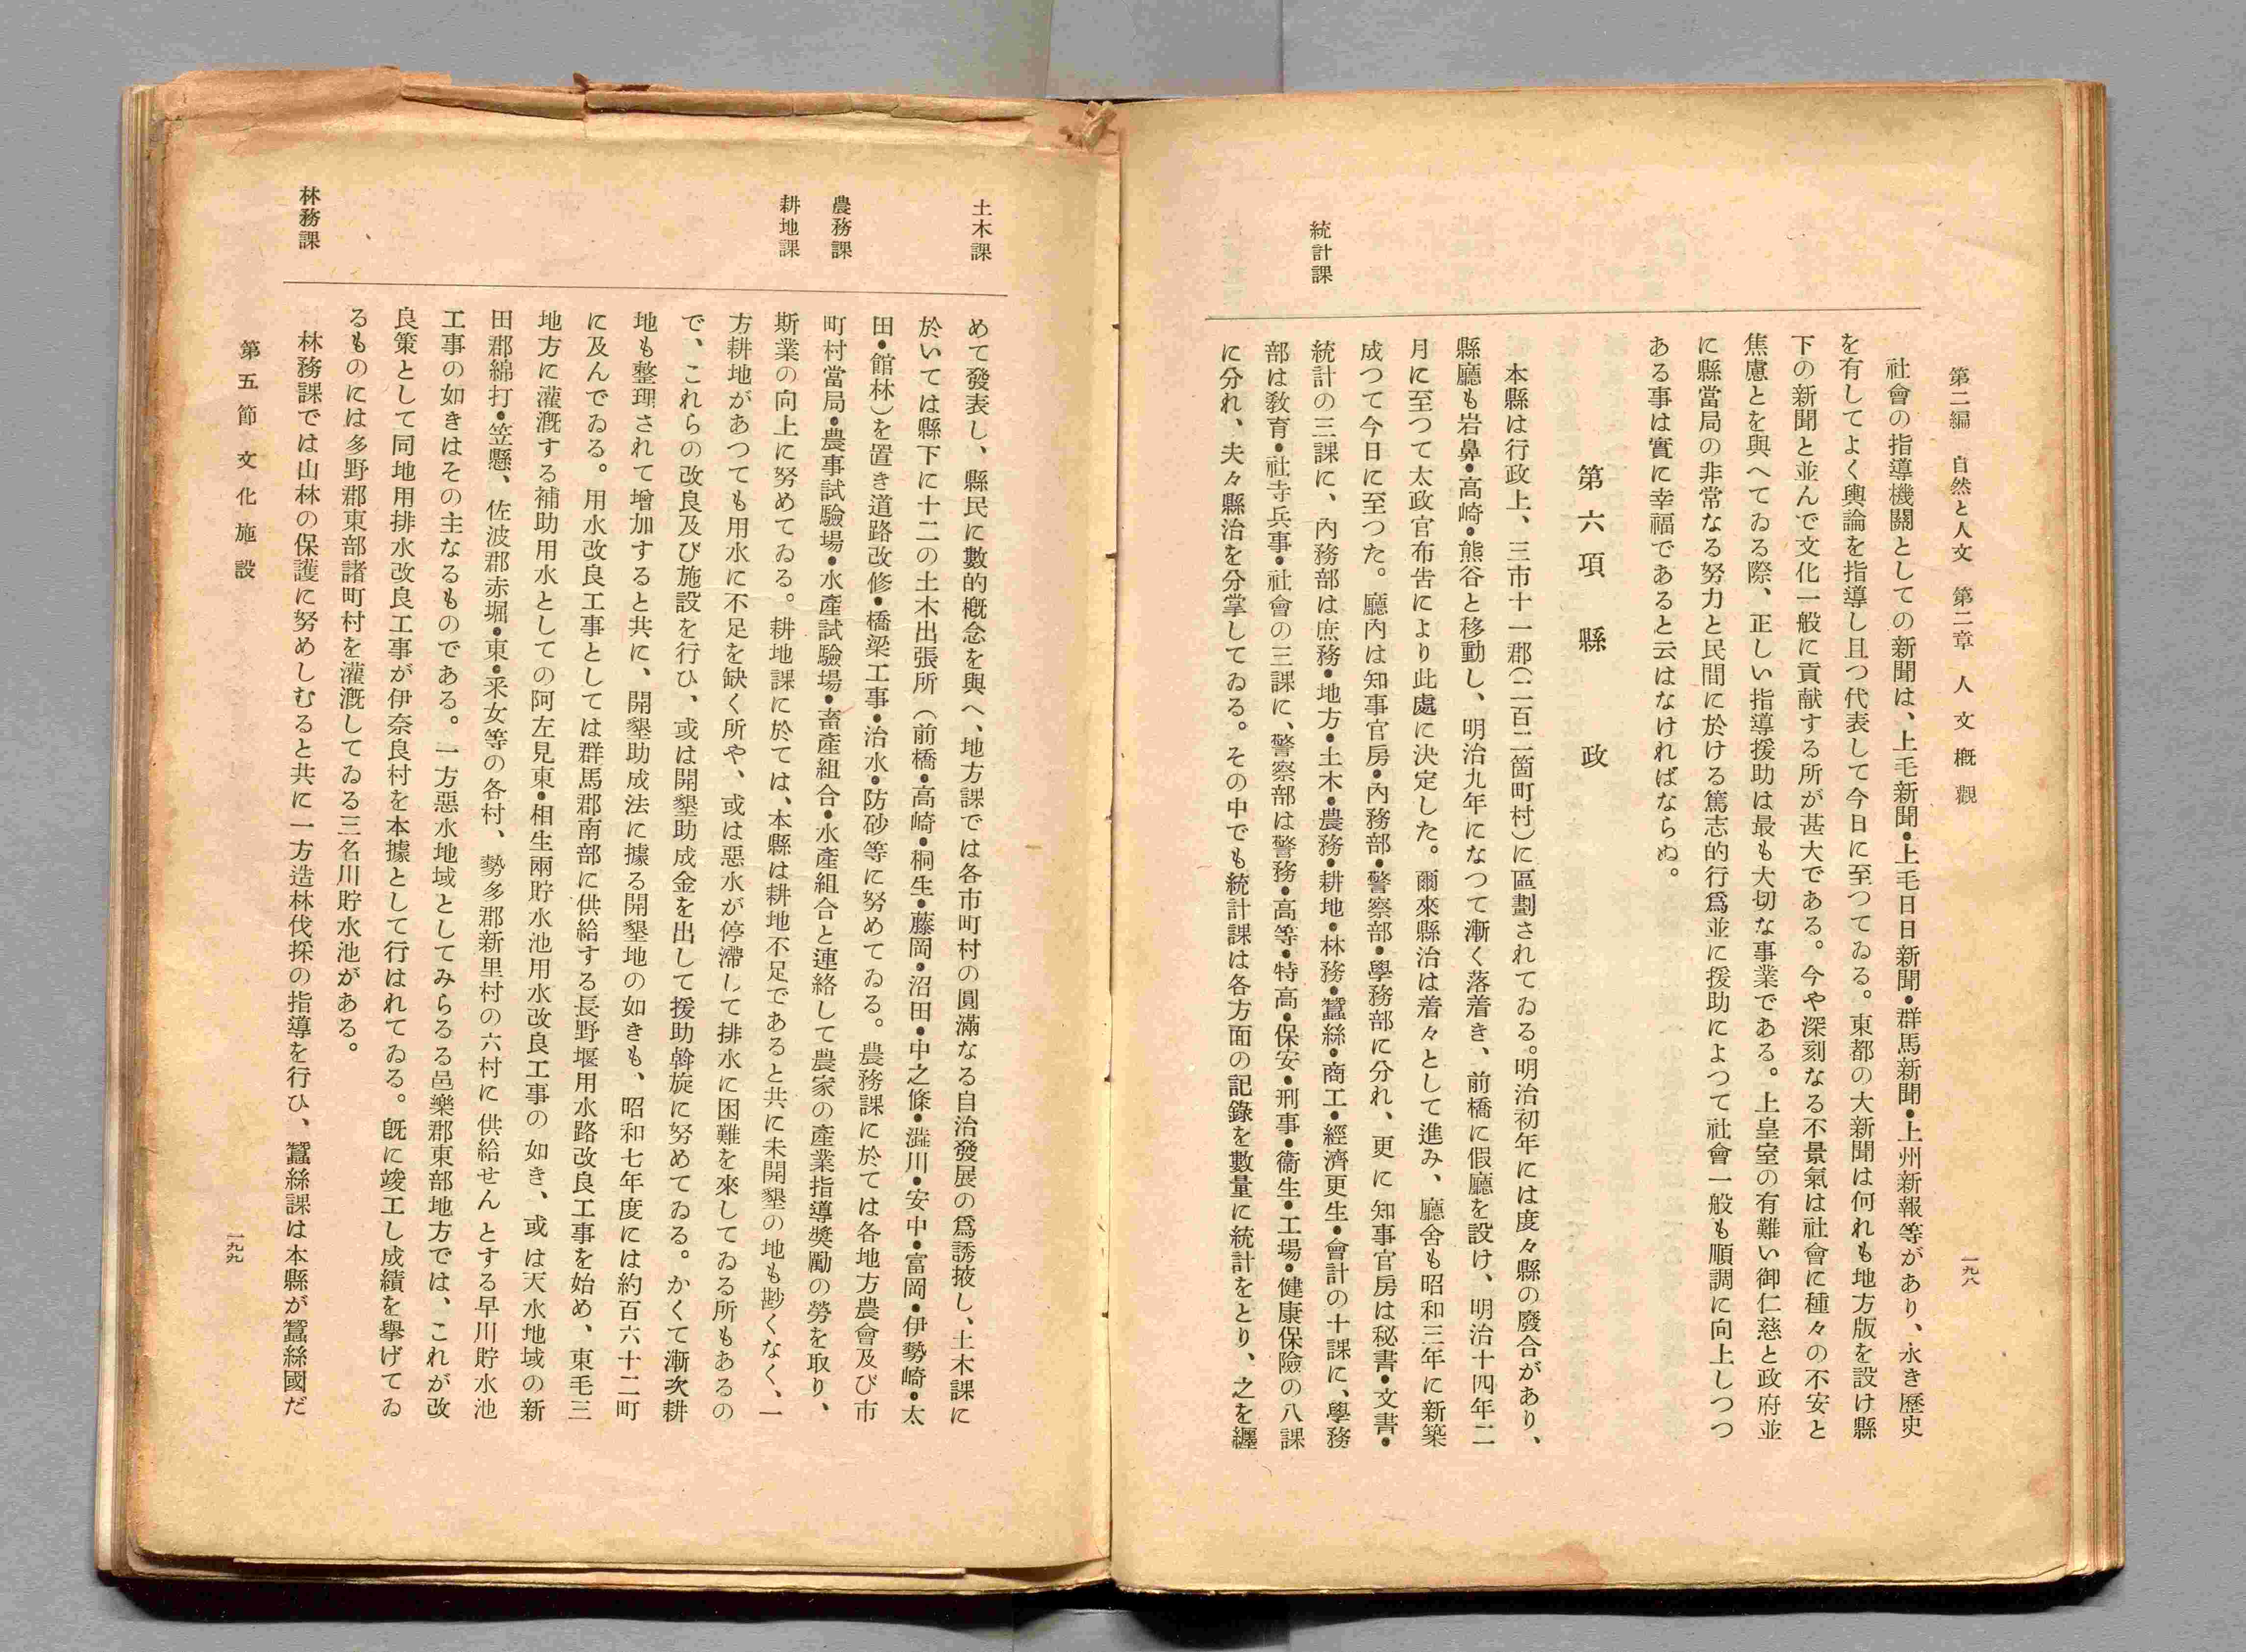 第二編　自然と人文　第二章　人文概觀
一九八
社會の指導機關としての新聞は、上毛新聞・上毛日日新聞・群馬新聞・上州新報等があり、永き歷史
を有してよく輿論を指導し且つ代表して今日に至つてゐる。東都の大新聞は何れも地方版を設け縣
下の新聞と並んで文化一般に貢献する所が甚大である。今や深刻なる不景氣は社會に種々の不安と
焦慮とを與へてゐる際、正しい指導援助は最も大切な事業である。上皇室の有難い御仁慈と政府並
に縣當局の非常なる努力と民間に於ける篤志的行爲並に援助によつて社會一般も順調に向上しつつ
ある事は實に幸福であると云はなければならぬ。
第六項　縣　政
本縣は行政上、三市十一郡(二百二箇町村)に區劃されてゐる。明治初年には度々縣の廢合があり、
縣廳も岩鼻・高崎・熊谷と移動し、明治九年になつて漸く落着き、前橋に假廳を設け、明治十四年二
月に至つて太政官布告により此處に決定した。爾來縣治は着々として進み、廳舍も昭和三年に新築
成つて今日に至つた。廳內は知事官房・內務部・警察部・學務部に分れ、更に知事官房は秘書・文書・
統計課
統計の三課に、內務部は庶務・地方・土木・農務・耕地・林務・蠶絲・商工・經濟更生・會計の十課に、學務
部は敎育・社寺兵事・社會の三課に、警察部は警務・高等・特高・保安・刑事・衞生・工場・健康保險の八課
に分れ、夫々縣治を分掌してゐる。その中でも統計課は各方面の記錄を數量に統計をとり、之を纒
めて發表し、縣民に數的槪念を與へ、地方課では各市町村の圓滿なる自治發展の爲誘掖し、土木課に
土木課
於いては縣下に十二の土木出張所(前橋・高崎・桐生・藤岡・沼田・中之條・澁川・安中・富岡・伊勢崎・太
田・館林)を置き道路改修・橋梁工事・治水・防砂等に努めてゐる。農務課に於ては各地方農會及び市
農務課
町村當局・農事試驗場・水產試驗場・畜產組合・水產組合と連絡して農家の產業指導奬勵の勞を取り、
耕地課
斯業の向上に努めてゐる。耕地課に於ては、本縣は耕地不足であると共に未開墾の地も尠くなく、一
方耕地があつても用水に不足を缺く所や、或は惡水が停滯して排水に困難を來してゐる所もあるの
で、これらの改良及び施設を行ひ、或は開墾助成金を出して援助斡旋に努めてゐる。かくて漸次耕
地も整理されて增加すると共に、開墾助成法に據る開墾地の如きも、昭和七年度には約百六十二町
に及んでゐる。用水改良工事としては群馬郡南部に供給する長野堰用水路改良工事を始め、東毛三
地方に灌漑する補助用水としての阿左見東・相生兩貯水池用水改良工事の如き、或は天水地域の新
田郡綿打・笠懸、佐波郡赤堀・東・采女等の各村、勢多郡新里村の六村に供給せんとする早川貯水池
工事の如きはその主なるものである。一方惡水地域としてみらるる邑樂郡東部地方では、これが改
良策として同地用排水改良工事が伊奈良村を本據として行はれてゐる。旣に竣工し成績を擧げてゐ
るものには多野郡東部諸町村を灌漑してゐる三名川貯水池がある。
林務課
林務課では山林の保護に努めしむると共に一方造林伐採の指導を行ひ、蠶絲課は本縣が蠶絲國だ
第五節　文化施設
一九九